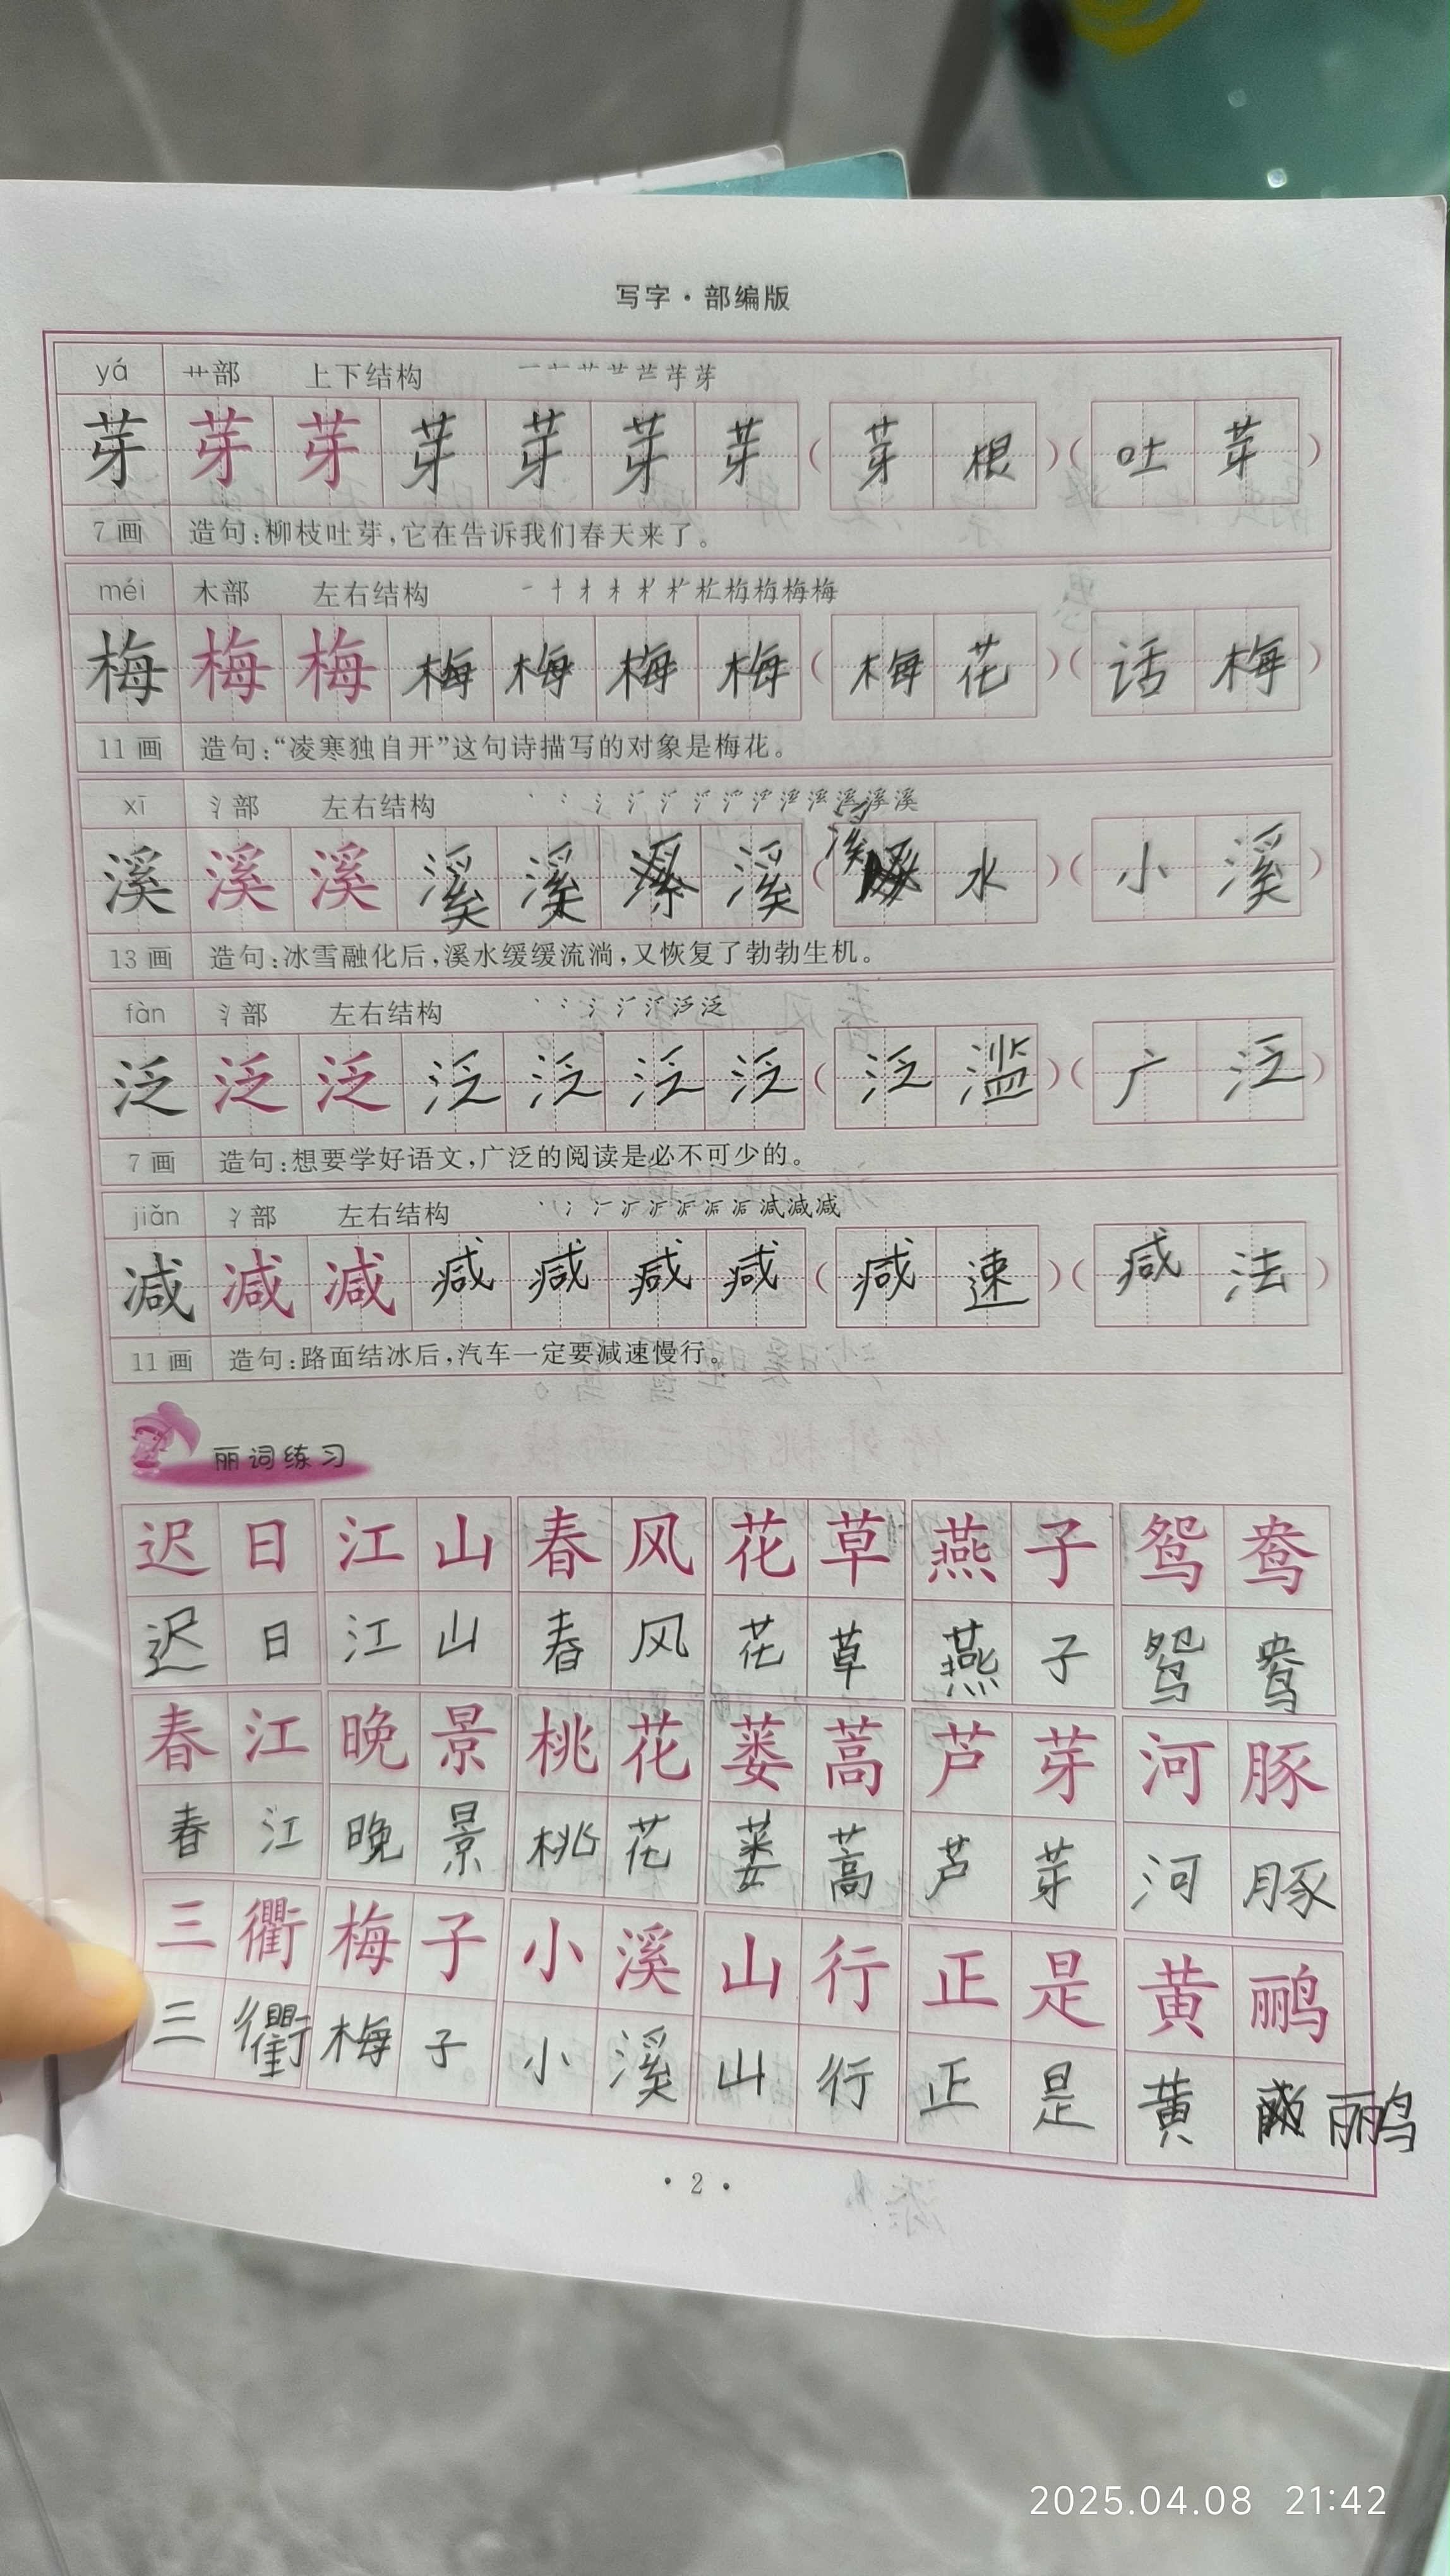 写字·部编版
yá 艹部 上下结构
芽 芽 芽 芽 芽 芽 芽 (芽根)(吐芽)
7画 造句:柳枝吐芽,它在告诉我们春天来了。
méi 木部 左右结构
梅 梅 梅 梅 梅 梅 梅 (梅花)(话梅)
11画 造句:“凌寒独自开”这句诗描写的对象是梅花。
xī 氵部 左右结构
溪 溪 溪 溪 溪 溪 (溪水)(小溪)
13画 造句:冰雪融化后,溪水缓缓流淌,又恢复了勃勃生机。
fàn 氵部 左右结构
泛 泛 泛 泛 泛 泛 泛 (泛滥)(广泛)
7画 造句:想要学好语文,广泛的阅读是必不可少的。
jiǎn 冫部 左右结构
减 减 减 减 减 减 减 (减速)(减法)
11画 造句:路面结冰后,汽车一定要减速慢行。
丽词练习
迟日 江山 春风 花草 燕子 鸳鸯
迟日 江山 春风 花草 燕子 鸳鸯
春江 晚景 桃花 蒌蒿 芦芽 河豚
春江 晚景 桃花 蒌蒿 芦芽 河豚
三衢 梅子 小溪 山行 正是 黄鹂
三衢 梅子 小溪 山行 正是 黄鹂
·2·
2025.04.08 21:42